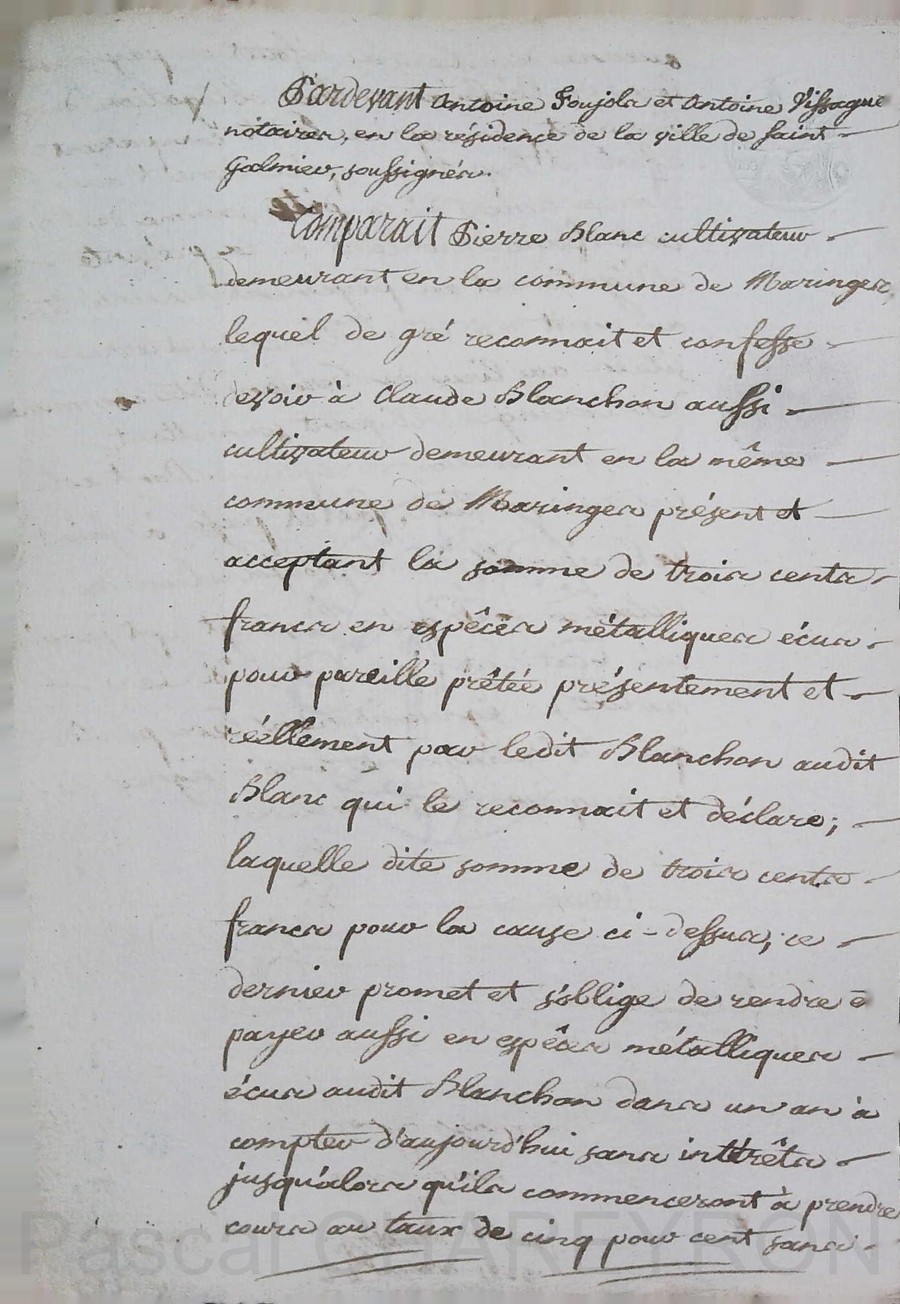 Pardevant Antoine Soujola et Antoine Vissague
notaires, en la résidence de la ville de saint-
Galmier, soussignés.
Comparait Pierre Blanc cultivateur
demeurant en la commune de Maringes,
lequel de gré reconnait et confesse
devoir à Claude Blanchon aussi
cultivateur demeurant en la même
commune de Maringes présent et
acceptant la somme de trois cents
francs en espêces métalliques écus
pour pareille prêtée présentement et
réellement par ledit Blanchon audit
Blanc qui le reconnait et déclare;
laquelle dite somme de trois cents
francs pour la cause ci-dessus, ce
dernier promet et s'oblige de rendre e
payer aussi en espêces métalliques
écus audit Blanchon dans un an à
compter d'aujourd'hui sans intérêts
jusqu'alors qu'ils commenceront à prendre
cours au taux de cinq pour cent sans
Pascal CHAREYRON